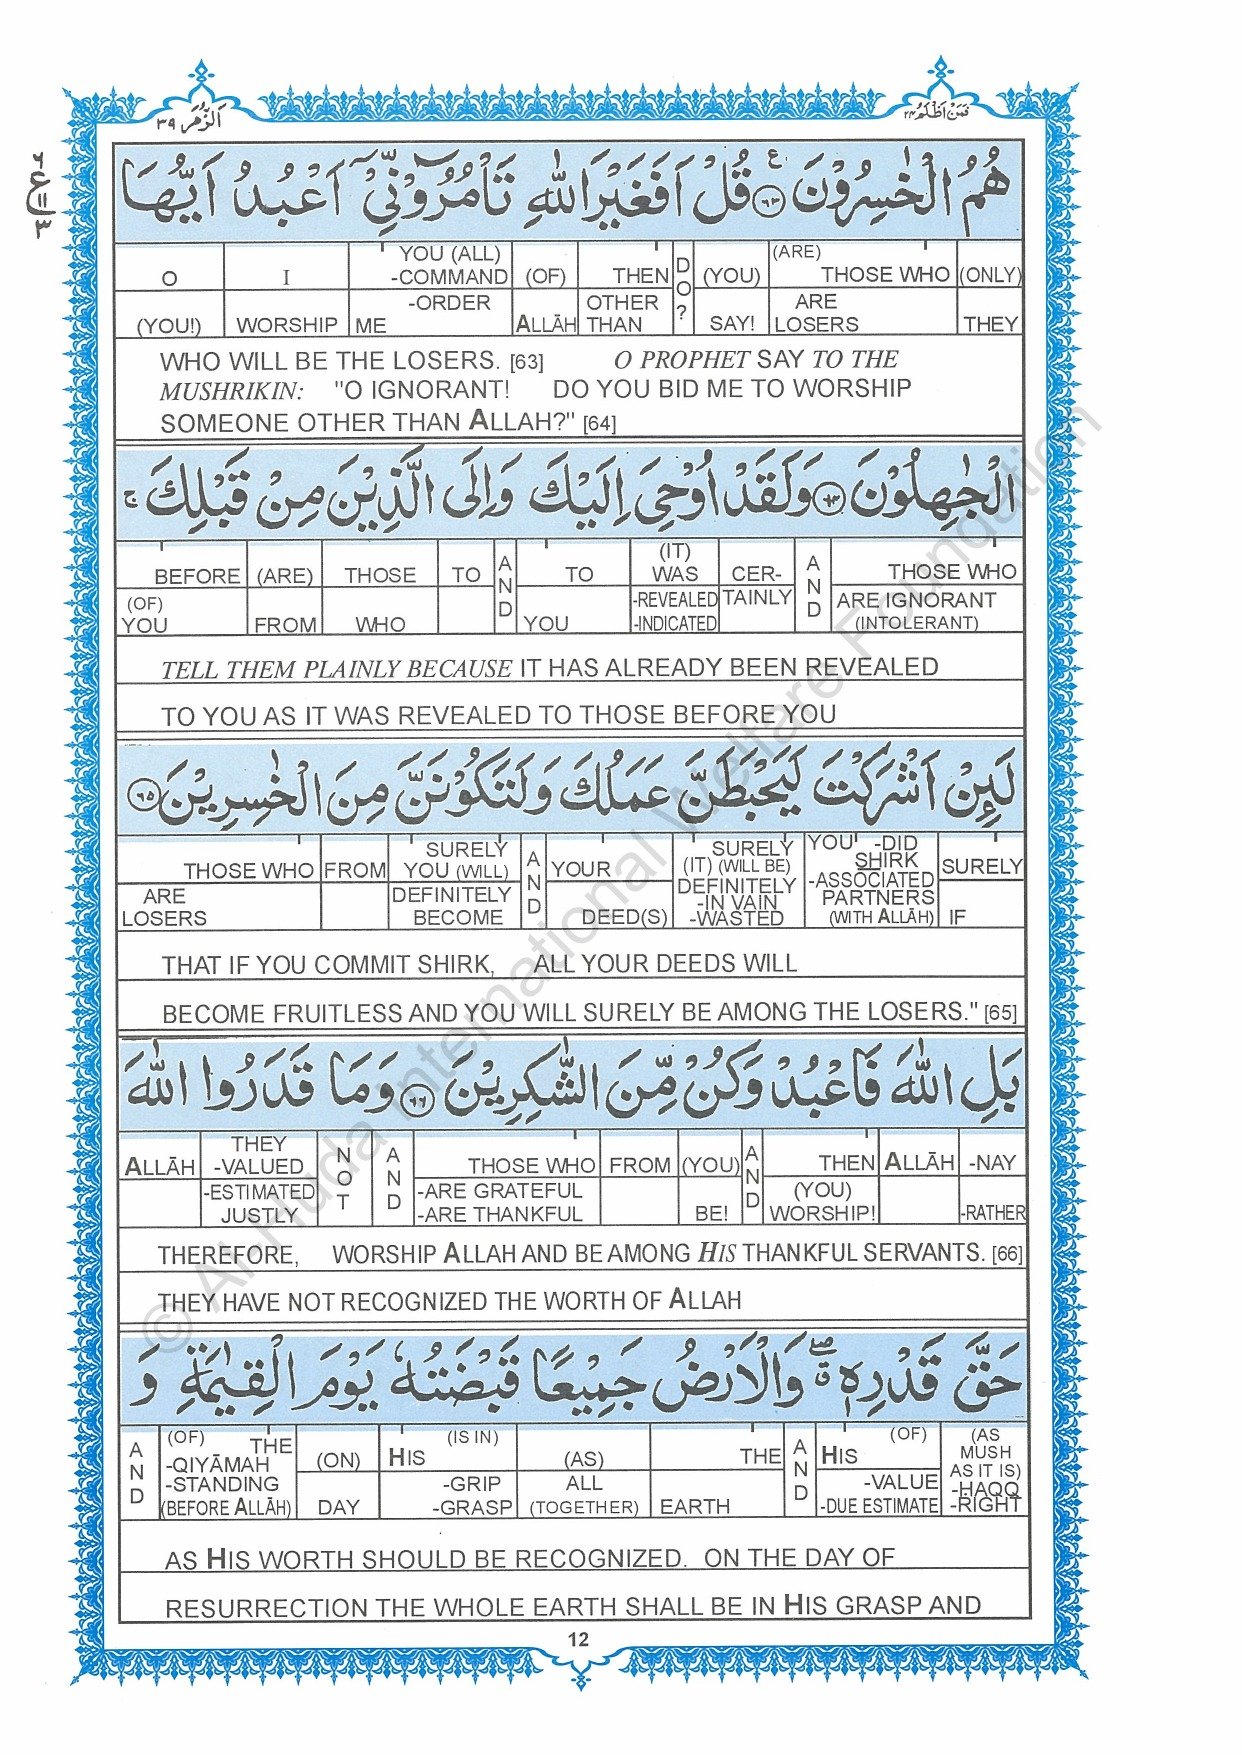 اَلزُّمَر ٣٩
فَمَنْ اَظْلَمُ ٢٤
ع
١١
٣
هُمُ الْخٰسِرُوْنَ ۧ﴿٦٣﴾ قُلْ اَفَغَيْرَ اللّٰهِ تَاْمُرُوْٓنِّيْٓ اَعْبُدُ اَيُّهَا
O (YOU!) | I WORSHIP | YOU (ALL) -COMMAND -ORDER ME | (OF) ALLĀH | THEN OTHER THAN | DO? | (YOU) SAY! | (ARE) THOSE WHO ARE LOSERS | (ONLY) THEY
WHO WILL BE THE LOSERS. [63] O PROPHET SAY TO THE
MUSHRIKIN: "O IGNORANT! DO YOU BID ME TO WORSHIP
SOMEONE OTHER THAN ALLAH?" [64]
الْجٰهِلُوْنَ ﴿٦٤﴾ وَلَقَدْ اُوْحِيَ اِلَيْكَ وَاِلَى الَّذِيْنَ مِنْ قَبْلِكَ ۚ
BEFORE (OF) YOU | (ARE) FROM | THOSE WHO | TO | AND | TO YOU | (IT) WAS -REVEALED -INDICATED | CER- TAINLY | AND | THOSE WHO ARE IGNORANT (INTOLERANT)
TELL THEM PLAINLY BECAUSE IT HAS ALREADY BEEN REVEALED
TO YOU AS IT WAS REVEALED TO THOSE BEFORE YOU
لَئِنْ اَشْرَكْتَ لَيَحْبَطَنَّ عَمَلُكَ وَلَتَكُوْنَنَّ مِنَ الْخٰسِرِيْنَ ﴿٦٥﴾
THOSE WHO ARE LOSERS | FROM | SURELY YOU (WILL) DEFINITELY BECOME | AND | YOUR DEED(S) | SURELY (IT) (WILL BE) DEFINITELY -IN VAIN -WASTED | YOU -DID SHIRK -ASSOCIATED PARTNERS (WITH ALLĀH) | SURELY IF
THAT IF YOU COMMIT SHIRK, ALL YOUR DEEDS WILL
BECOME FRUITLESS AND YOU WILL SURELY BE AMONG THE LOSERS." [65]
بَلِ اللّٰهَ فَاعْبُدْ وَكُنْ مِّنَ الشّٰكِرِيْنَ ﴿٦٦﴾ وَمَا قَدَرُوا اللّٰهَ
ALLĀH | THEY -VALUED -ESTIMATED JUSTLY | NOT | AND | THOSE WHO -ARE GRATEFUL -ARE THANKFUL | FROM | (YOU) BE! | AND | THEN (YOU) WORSHIP! | ALLĀH | -NAY -RATHER
THEREFORE, WORSHIP ALLAH AND BE AMONG HIS THANKFUL SERVANTS. [66]
THEY HAVE NOT RECOGNIZED THE WORTH OF ALLAH
حَقَّ قَدْرِهٖ ۖ وَالْاَرْضُ جَمِيْعًا قَبْضَتُهٗ يَوْمَ الْقِيٰمَةِ وَ
AND | (OF) THE -QIYĀMAH -STANDING (BEFORE ALLĀH) | (ON) DAY | HIS (IS IN) -GRIP -GRASP | (AS) ALL (TOGETHER) | THE EARTH | AND | HIS (OF) -VALUE -DUE ESTIMATE | (AS MUSH AS IT IS) -HAQQ -RIGHT
AS HIS WORTH SHOULD BE RECOGNIZED. ON THE DAY OF
RESURRECTION THE WHOLE EARTH SHALL BE IN HIS GRASP AND
12
© Al-Huda International Welfare Foundation